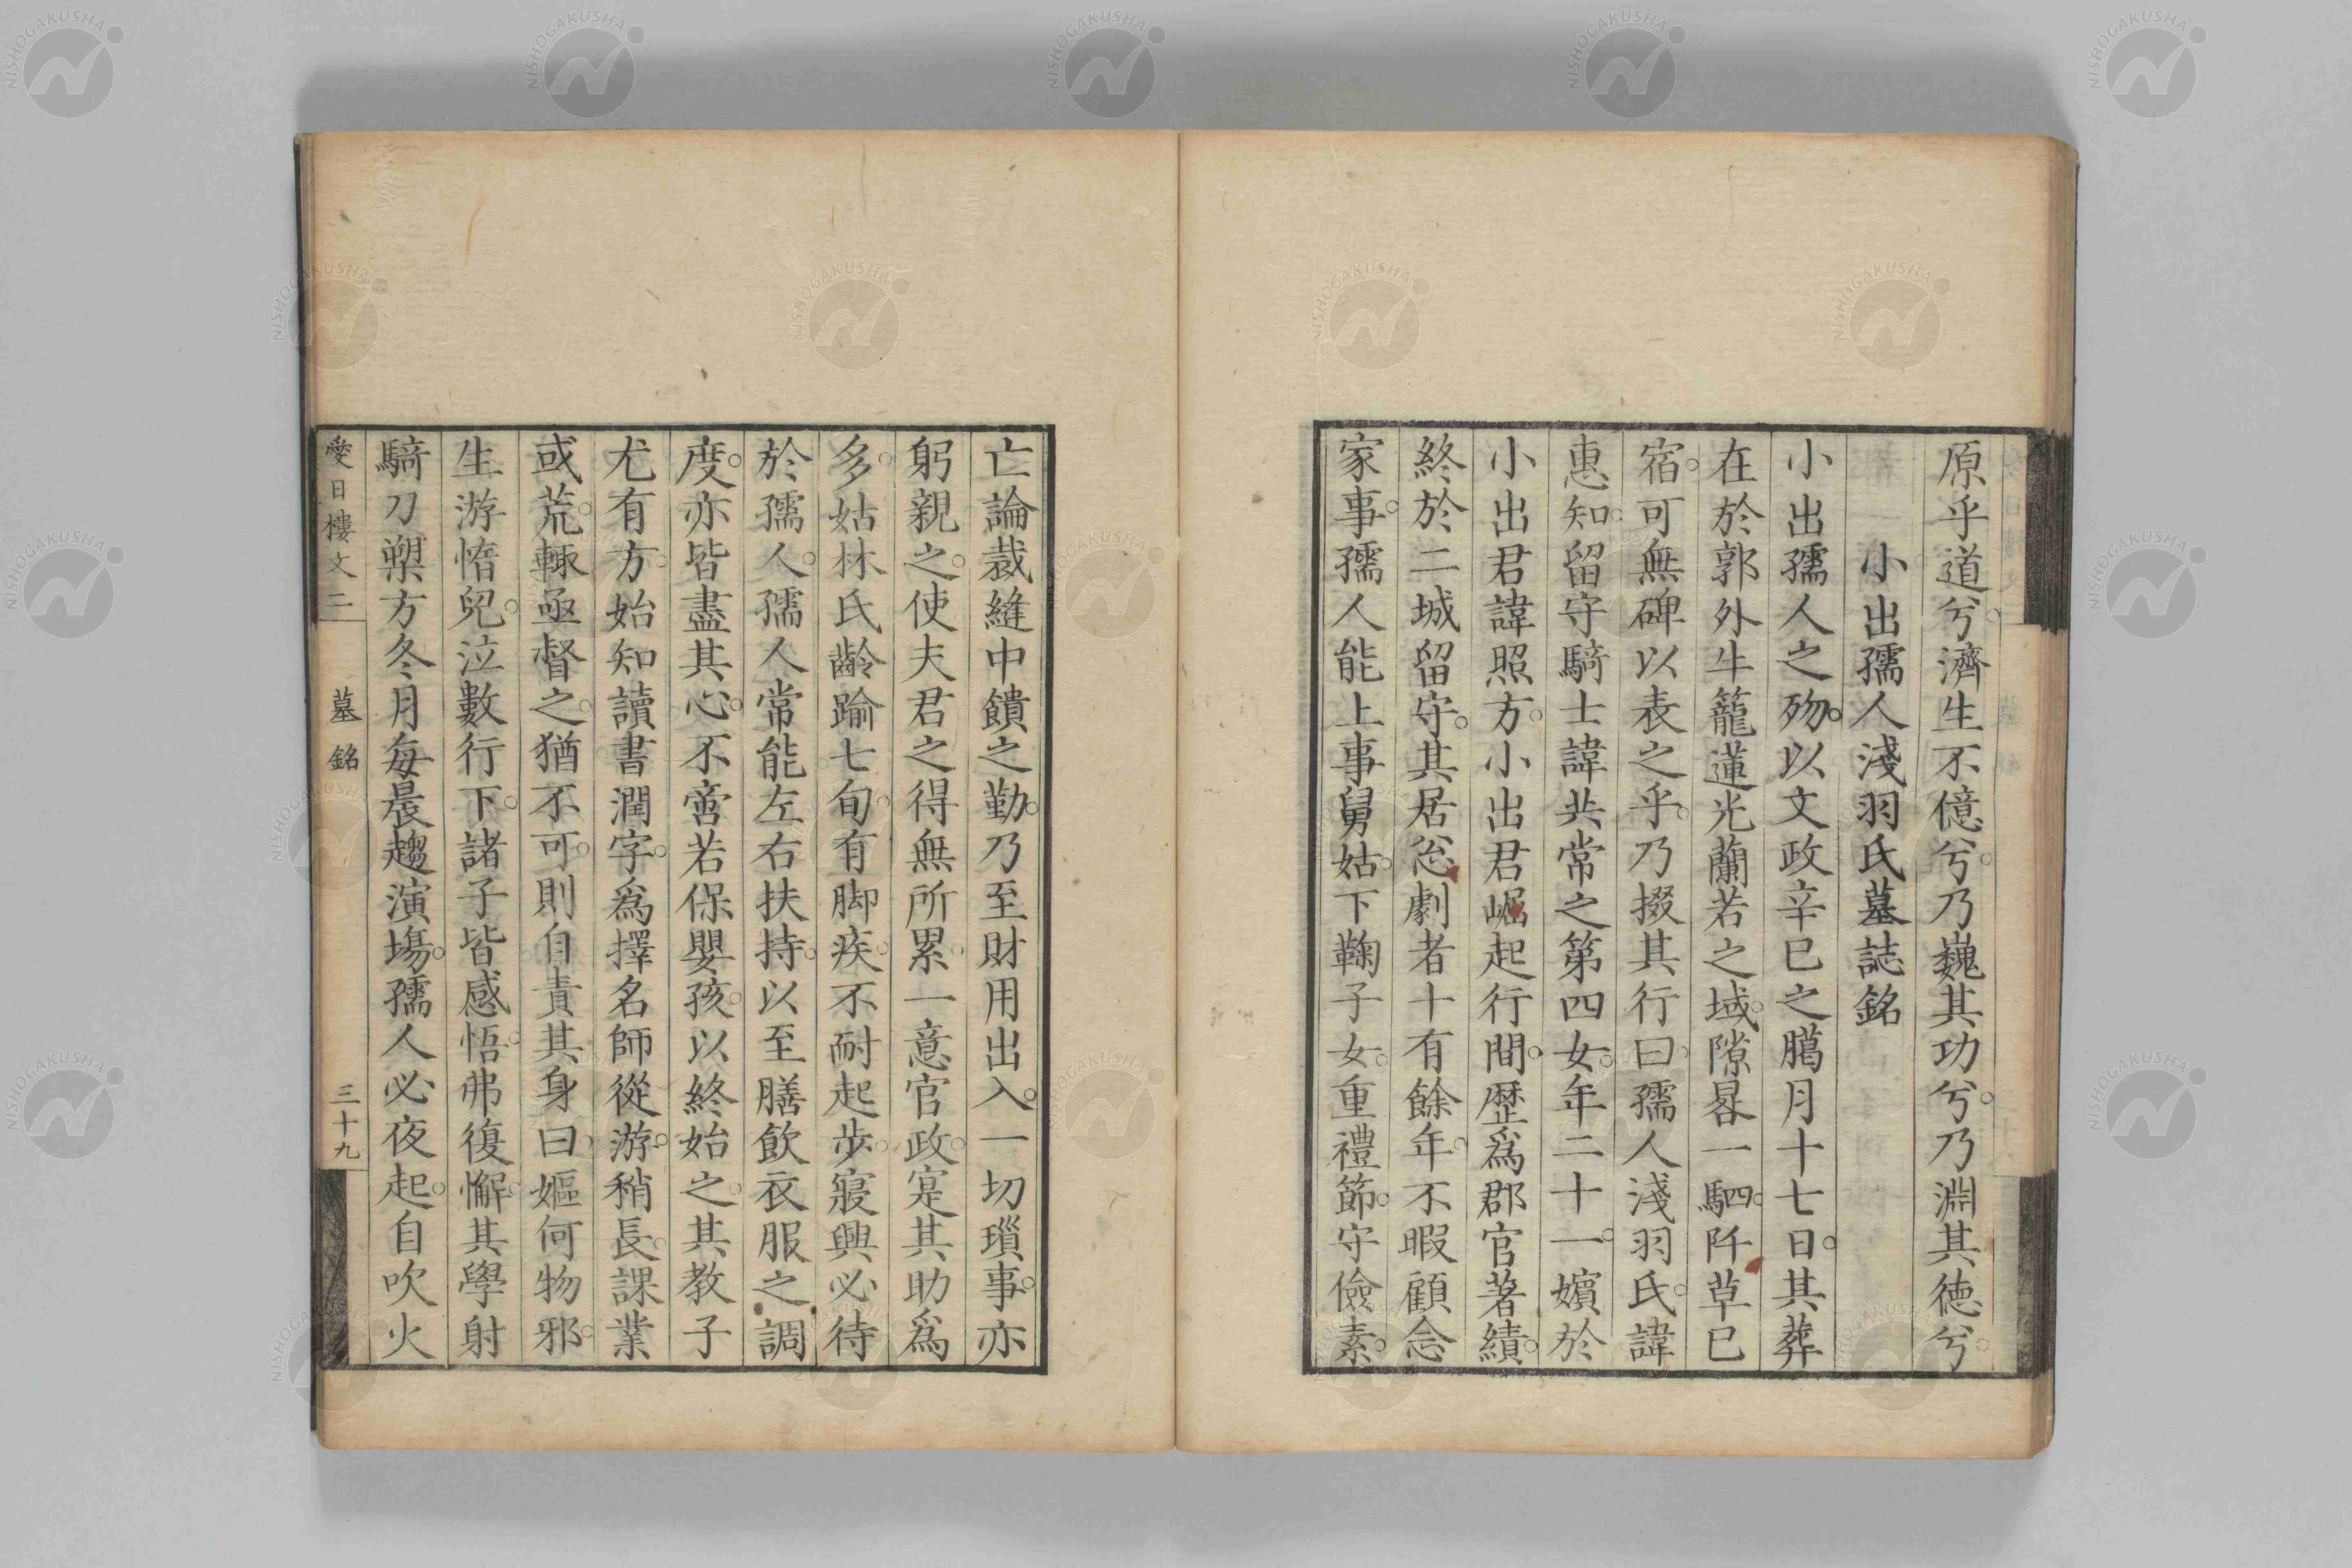 原乎道兮。濟生不億兮。乃巍其功兮。乃淵其徳兮。
小出孺人淺羽氏墓誌銘
小出孺人之歾。以文政辛巳之臈月十七日。其葬
在於郭外牛籠蓮光蘭若之域。隙晷一駟。阡草已
宿。可無碑以表之乎。乃掇其行曰。孺人淺羽氏。諱
惠知。留守騎士諱共常之第四女。年二十一。嬪於
小出君諱照方。小出君崛起行間。歴爲郡官著績。
終於二城留守。其居忩劇者十有餘年。不暇顧念
家事。孺人能上事舅姑。下鞠子女。重禮節。守儉素。
亡論裁縫中饋之勤。乃至財用出入。一切瑣事。亦
躬親之。使夫君之得無所累。一意官政。寔其助爲
多。姑林氏齡踰七旬。有脚疾。不耐起步。寢興必待
於孺人。孺人常能左右扶持。以至膳飲衣服之調
度。亦皆盡其心。不啻若保嬰孩。以終始之。其教子
尤有方。始知讀書潤字。爲擇名師從游。稍長。課業
或荒。輙亟督之。猶不可。則自責其身曰。嫗何物邪。
生游惰兒。泣數行下。諸子皆感悟。弗復懈。其學射
騎刀槊。方冬月每晨趨演塲。孺人必夜起。自吹火
愛日樓文二
墓銘
三十九
NISHOGAKUSHA